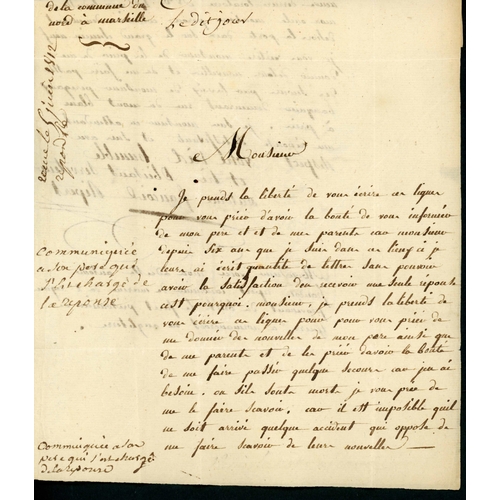 de la commune du
nord à marseille
Le dit jour
recue le 5 juin 1812
repondu le
Monsieur
Je prends la liberté de vous écrire ces lignes
pour vous prier d'avoir la bonté de vous informée
de mon pere et et de mes parents car monsieur
depuis six ans que je suis dans ces lieux ci je
leurs ai écrit quantité de lettre sans pouvoir
avoir la satisfaction den recevoir une seule reponse
cest pourquoi, monsieur, je prends la liberté de
vous écrire ces lignes pour pour vous prier de
me donner des nouvelles de mon pere ainsi que
de mes parents et de les prier davoir la bonté
de me faire passer quelque secours car jen ai
besoin, ou sils sont morts je vous prie de
me le faire scavoir, car il est imposible quil
ne soit arrivé quelque accident qui oppose de
me faire scavoir de leurs nouvelles
Communiquée
a son pere qui
s'est chargé de
la reponse
Communiquée a son
pere qui s'est chargé
de la reponse